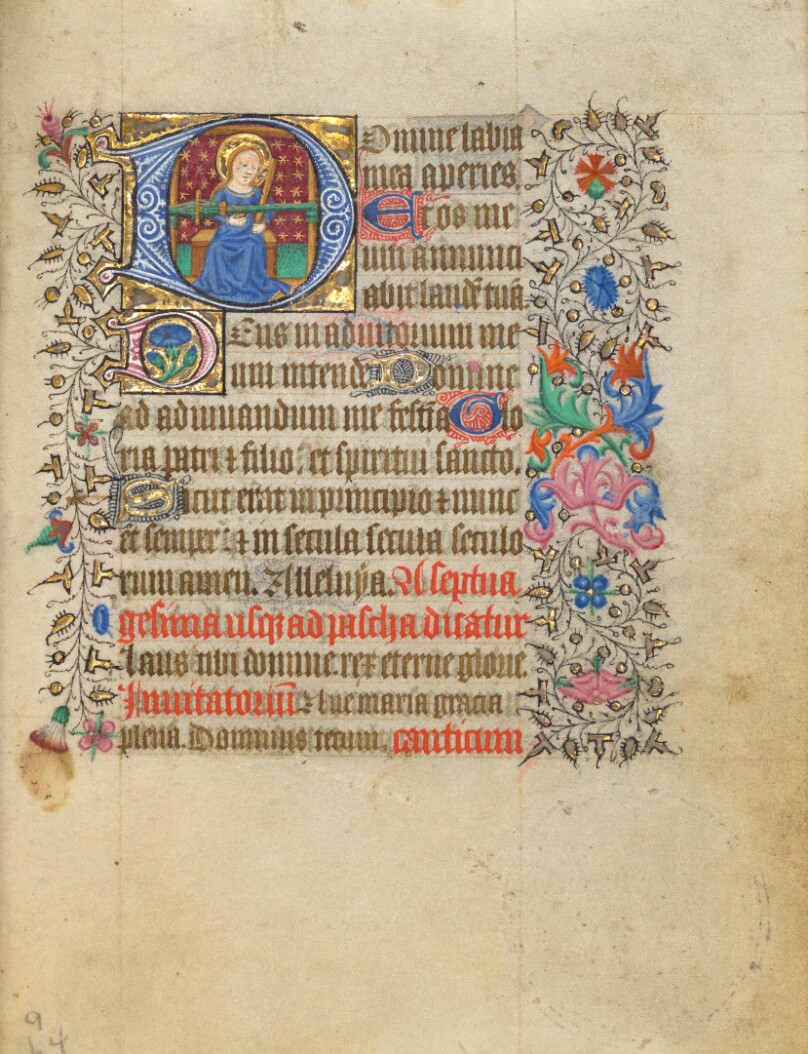 Domine labia
mea aperies.
Et os me
um annunci
abit laudē tuā.
Deus in adiutorium me
um intende Domine
ad adiuuandum me festia Glo
ria patri ⁊ filio: et spiritui sancto.
Sicut erat in principio ⁊ nunc
et semper: ⁊ in secula secula seculo
rum amen. Alleluya. A septua
gesima usqʒ ad pascha dicatur
Laus tibi domine. rex eterne glorie.
Inuitatoriū Aue maria gracia
plena. Dominus tecum. canticum
9